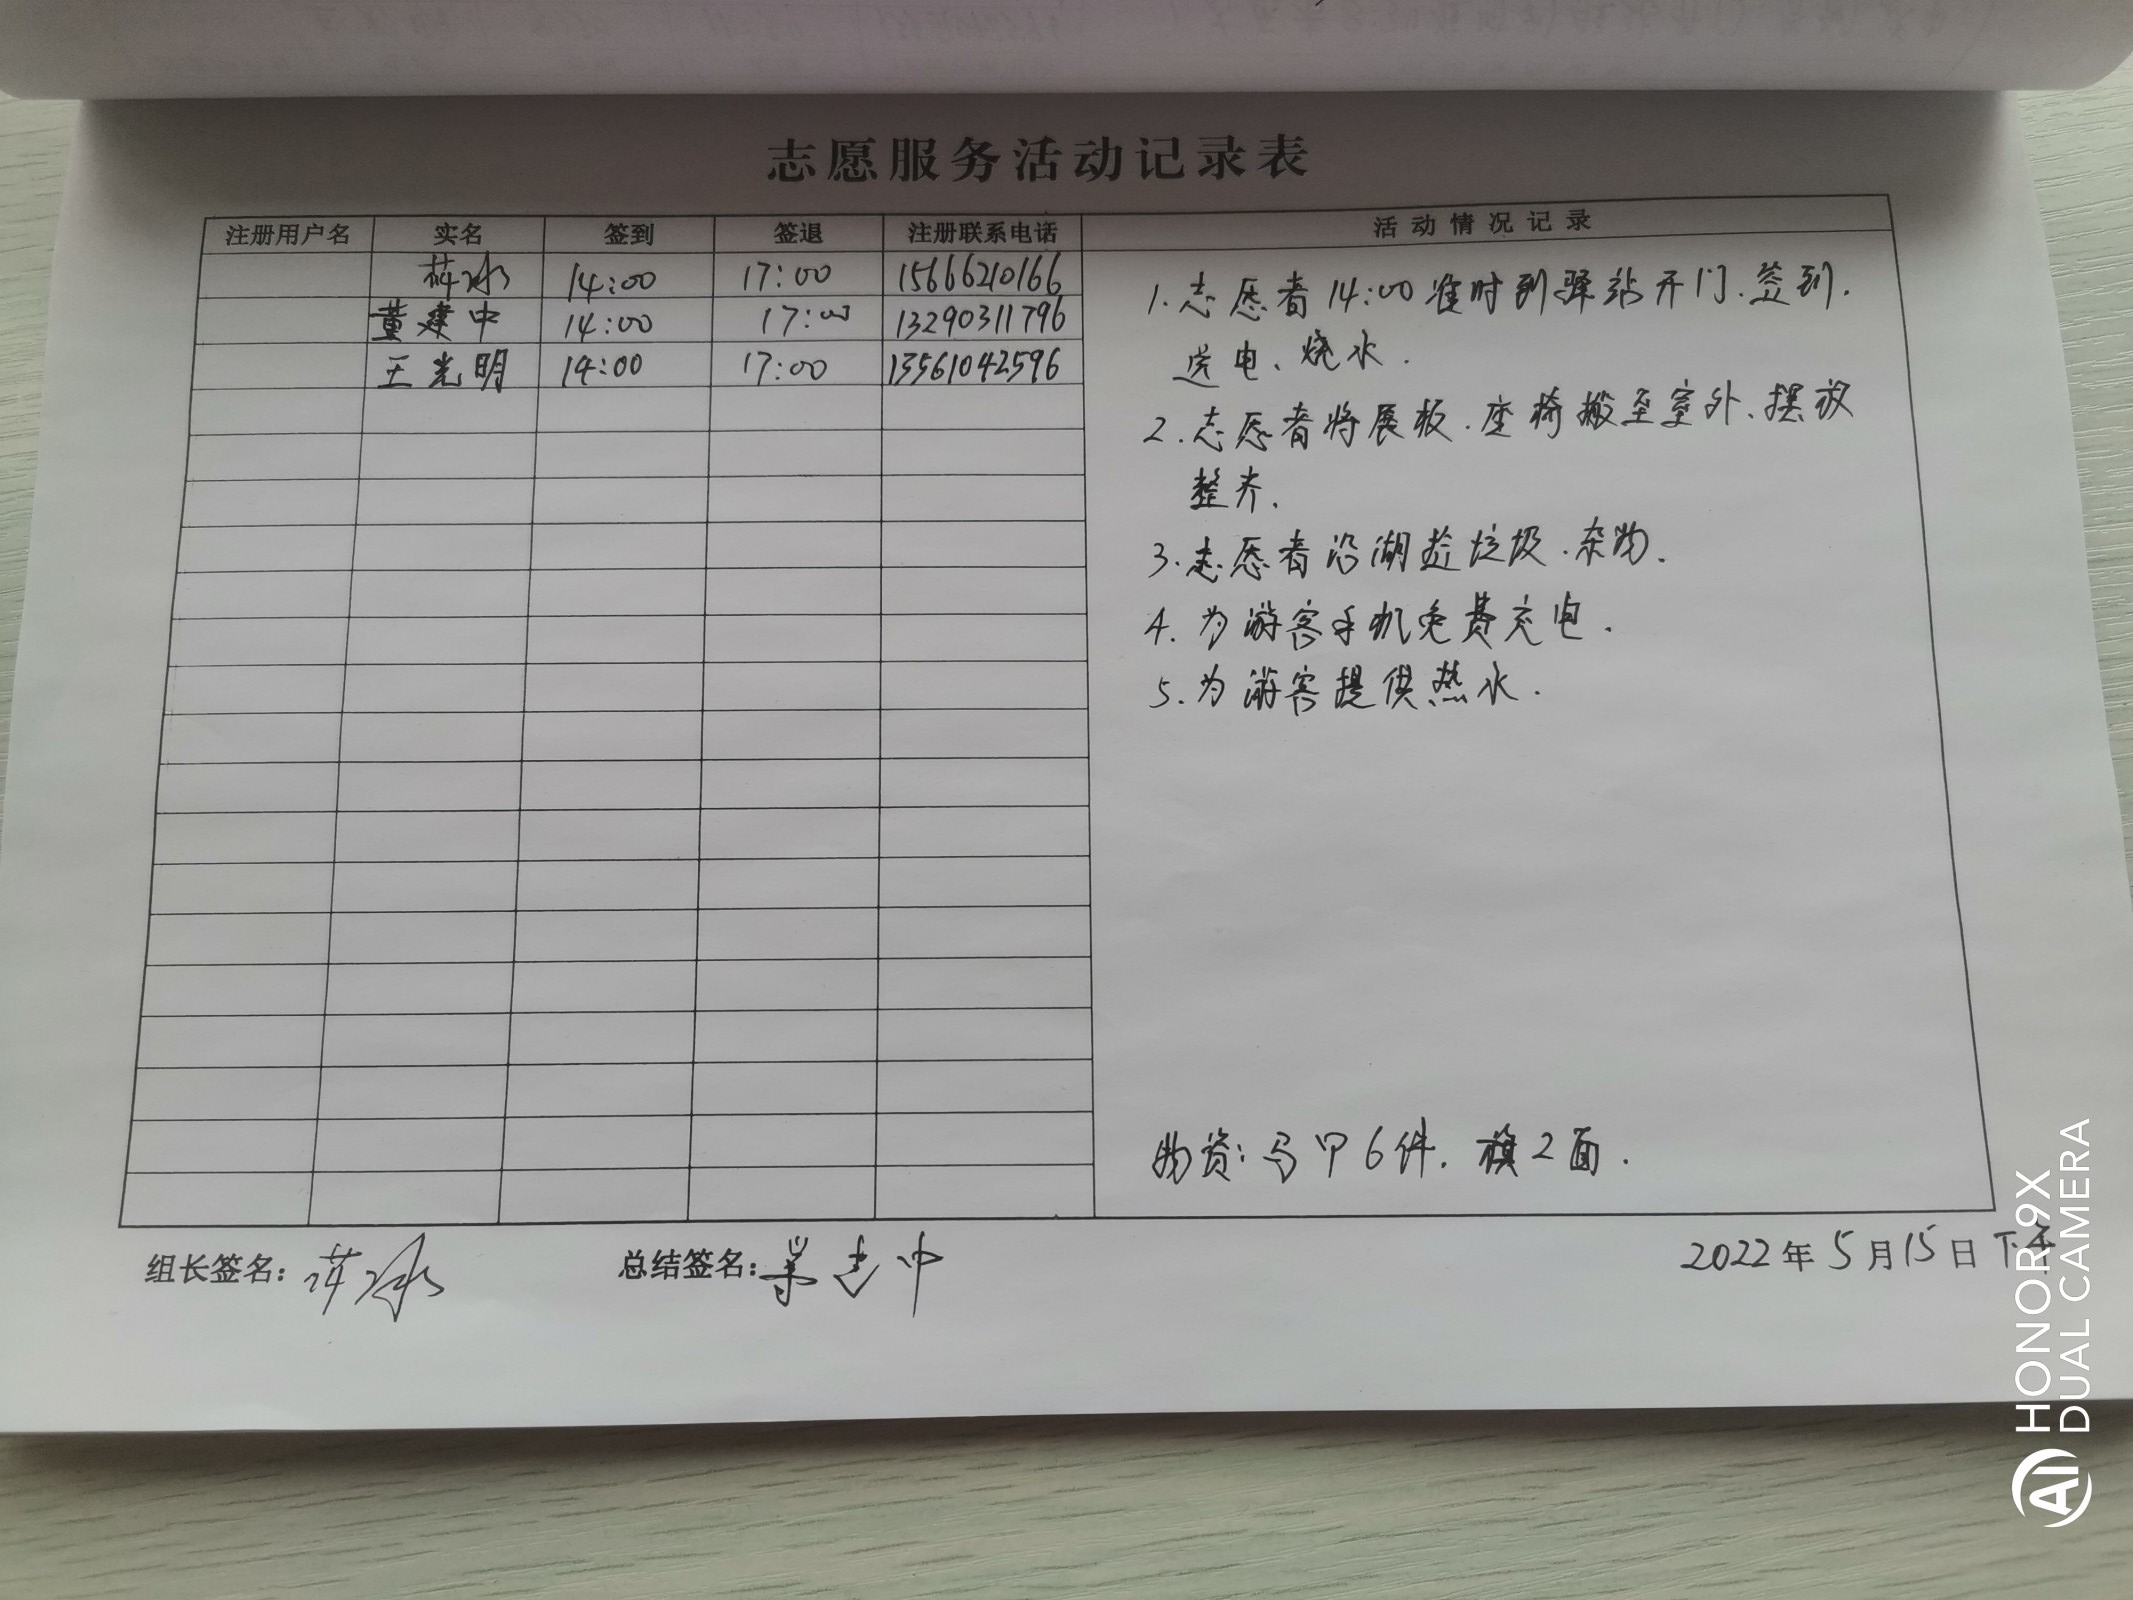 志愿服务活动记录表
注册用户名 实名 签到 签退 注册联系电话 活动情况记录
蒋冰 14:00 17:00 15666210166
董建中 14:00 17:00 13290311796
王光明 14:00 17:00 13561042596
1.志愿者14:00准时到驿站开门、签到、
送电、烧水.
2.志愿者将展板、座椅搬至室外、摆放
整齐.
3.志愿者沿湖捡垃圾、杂物.
4.为游客手机免费充电.
5.为游客提供热水.
物资:马甲6件,旗2面.
组长签名: 蒋冰 总结签名: 董建中 2022年5月15日下午
HONOR 9X
DUAL CAMERA
AI